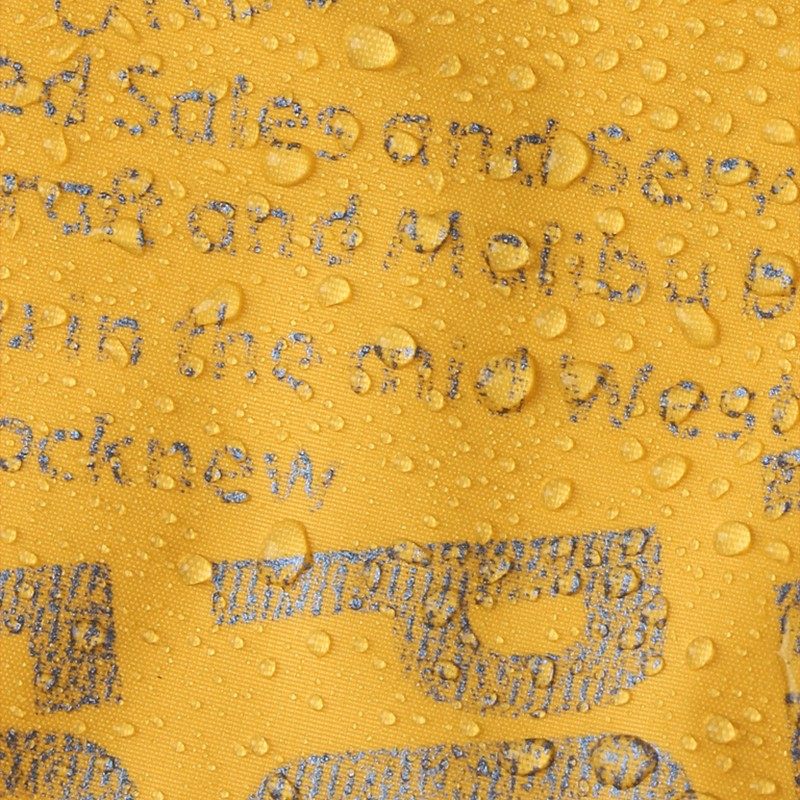 ed Sales and Serv
raft and Malibu B
u in the mid West
ocknew